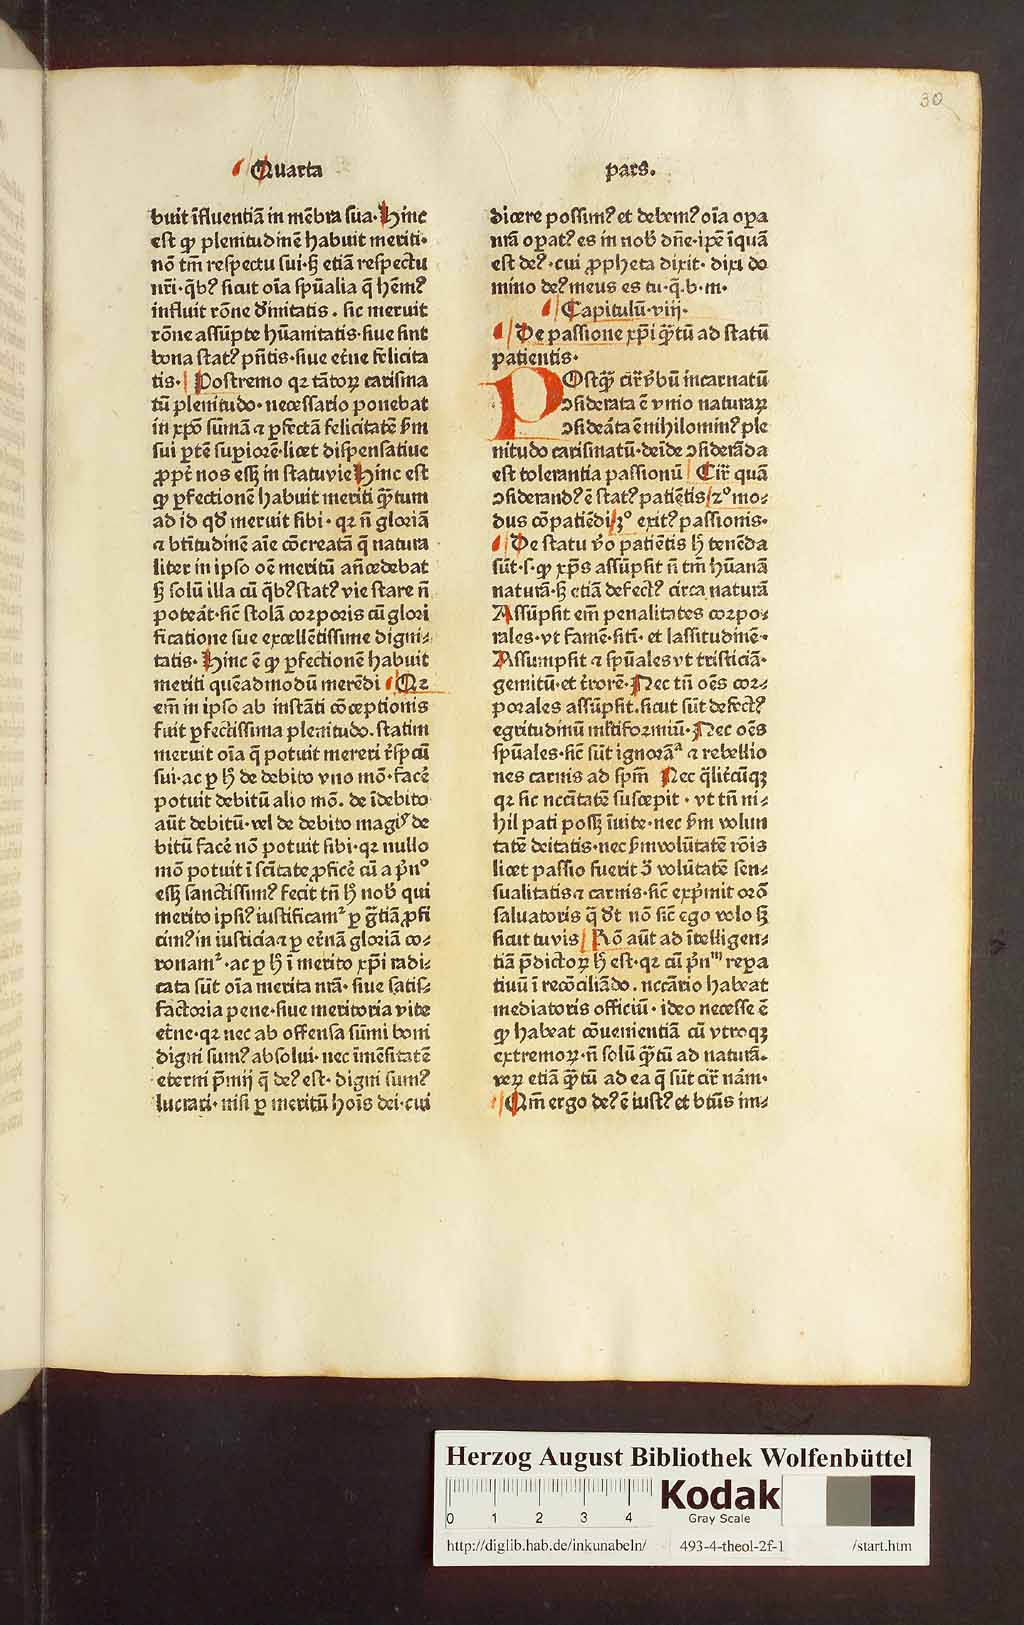 30
Quarta pars.
buit īfluentiā in mēbra sua. Hinc
est ꝙ plenitudinē habuit meriti.
nō tm̄ respectu sui. sꝫ etiā respectu
nr̄i. q̄bꝰ sicut oīa spūalia q̄ hēmꝰ
influit rōne d'initatis. sic meruit
rōne assūpte hūanitatis. siue sint
bona statꝰ pn̄tis. siue et̄ne felicita
tis. Postremo qꝛ tātoꝝ carisma
tū plenitudo. necessario ponebat
in xp̄o sūmā ⁊ ꝑfectā felicitatē ẜm
sui ꝑtē supiorē. licet dispensatiue
ꝓpt̄ nos essꝫ in statu vie Hinc est
ꝙ ꝑfectionē habuit meriti q̄ꝫtum
ad id qd̄ meruit sibi. qꝛ n̄ gloriā
⁊ btītudinē aīe cōcreatā q̄ natura
liter in ipso oē meritū añcedebat
sꝫ solū illa cū q̄bꝰ statꝰ vie stare n̄
poteāt. sic̄ stolā corporis cū glori
ficatione sue excellētissime digni⸗
tatis. Hinc ē ꝙ ꝑfectionē habuit
meriti quēadmodū merēdi Qꝛ
em̄ in ipso ab instāti cōceptionis
fuit ꝑfectissima plenitudo. statim
meruit oīa q̄ potuit mereri r̄spcū
sui. ac ꝑ hꝫ de debito vno mō. facē
potuit debitū alio mō. de īdebito
aūt debitū. vel de debito magꝭ de
bitū facē nō potuit sibi. qꝛ nullo
mō potuit ī scītate ꝓficē cū a p̄nº
essꝫ sanctissimꝰ fecit tn̄ hꝫ nob̄ qui
merito ipsiꝰ iustificamᷣ ꝑ gr̄tiā ꝓfi
cimꝰ in iusticia ⁊ ꝑ et̄nā gloriā co⸗
ronamᷣ. ac ꝑ hꝫ ī merito xp̄i radi⸗
cata sūt oīa merita nr̄a. siue satis⸗
factoria pene. siue meritoria vite
et̄ne. qꝛ nec ab offensa sūmi boni
digni sumꝰ absolui. nec īmēsitatē
eterni p̄mij q̄ deꝰ est. digni sumꝰ
lucrari. nisi ꝑ meritū hoīs dei. cui
dicere possimꝰ et debemꝰ oīa oꝑa
nr̄a oꝑatꝰ es in nob̄ dn̄e. ip̄e īquā
est deꝰ. cui ꝓpheta dixit. dixi do
mino deꝰ meus es tu. q̄. b. m.
Capitulū. viij.
De passione xp̄i q̄ꝫtū ad statū
patientis.
POstq̄ꝫ cir̄ v̄bū incarnatū
ↄsiderata ē vnio naturaꝝ
ↄsideāta ē nihilominꝰ ple
nitudo carismatū. deīde ↄsiderāda
est tolerantia passionū Cir̄ quā
ↄsiderandꝰ ē statꝰ patiētis 2º mo⸗
dus cōpatiēdi 3º exitꝰ passionis.
De statu v̄o patiētis hꝫ tenēda
sūt. s. ꝙ xp̄s assūpsit n̄ tm̄ hūanā
naturā. sꝫ etiā defectꝰ circa naturā
Assūpsit em̄ penalitates corpo⸗
rales. vt famē. sitī. et lassitudinē.
Assumpsit ⁊ spūales vt tristiciā.
gemitū. et t̄rorē. Nec tn̄ oēs cor⸗
porales assūpsit. sicut sūt defectꝰ
egritudinū ml̄tiformiū. Nec oēs
spūales. sic̄ sūt ignorāᵃ ⁊ rebellio
nes carnis ad spm̄ Nec q̄lit̄cūqꝫ
qꝛ sic nccītatē suscepit. vt tn̄ ni⸗
hil pati possꝫ īuite. nec ẜm volun
tatē deitatis. nec ẜm volūtatē rōis
licet passio fuerit ↄ̄ volūtatē sen⸗
sualitatis ⁊ carnis. sic̄ exp̄mit orō
saluatoris q̄ d'r nō sic̄ ego volo sꝫ
sicut tu vis Rō aūt ad ītelligen⸗
tiā p̄dictoꝝ hꝫ est. qꝛ cū p̄nᵐ reꝑa
tiuū ī recōciliādo. nccārio habeat
mediatoris officiū. ideo necesse ē
ꝙ habeat cōuenientiā cū vtroqꝫ
extremoꝝ. n̄ solū q̄ꝫtū ad naturā.
veꝝ etiā q̄ꝫtū ad ea q̄ sūt cir̄ nām.
Qm̄ ergo deꝰ ē iustꝰ et btūs im⸗
Herzog August Bibliothek Wolfenbüttel
0 1 2 3 4
Kodak
Gray Scale
http://diglib.hab.de/inkunabeln/ 493-4-theol-2f-1 /start.htm